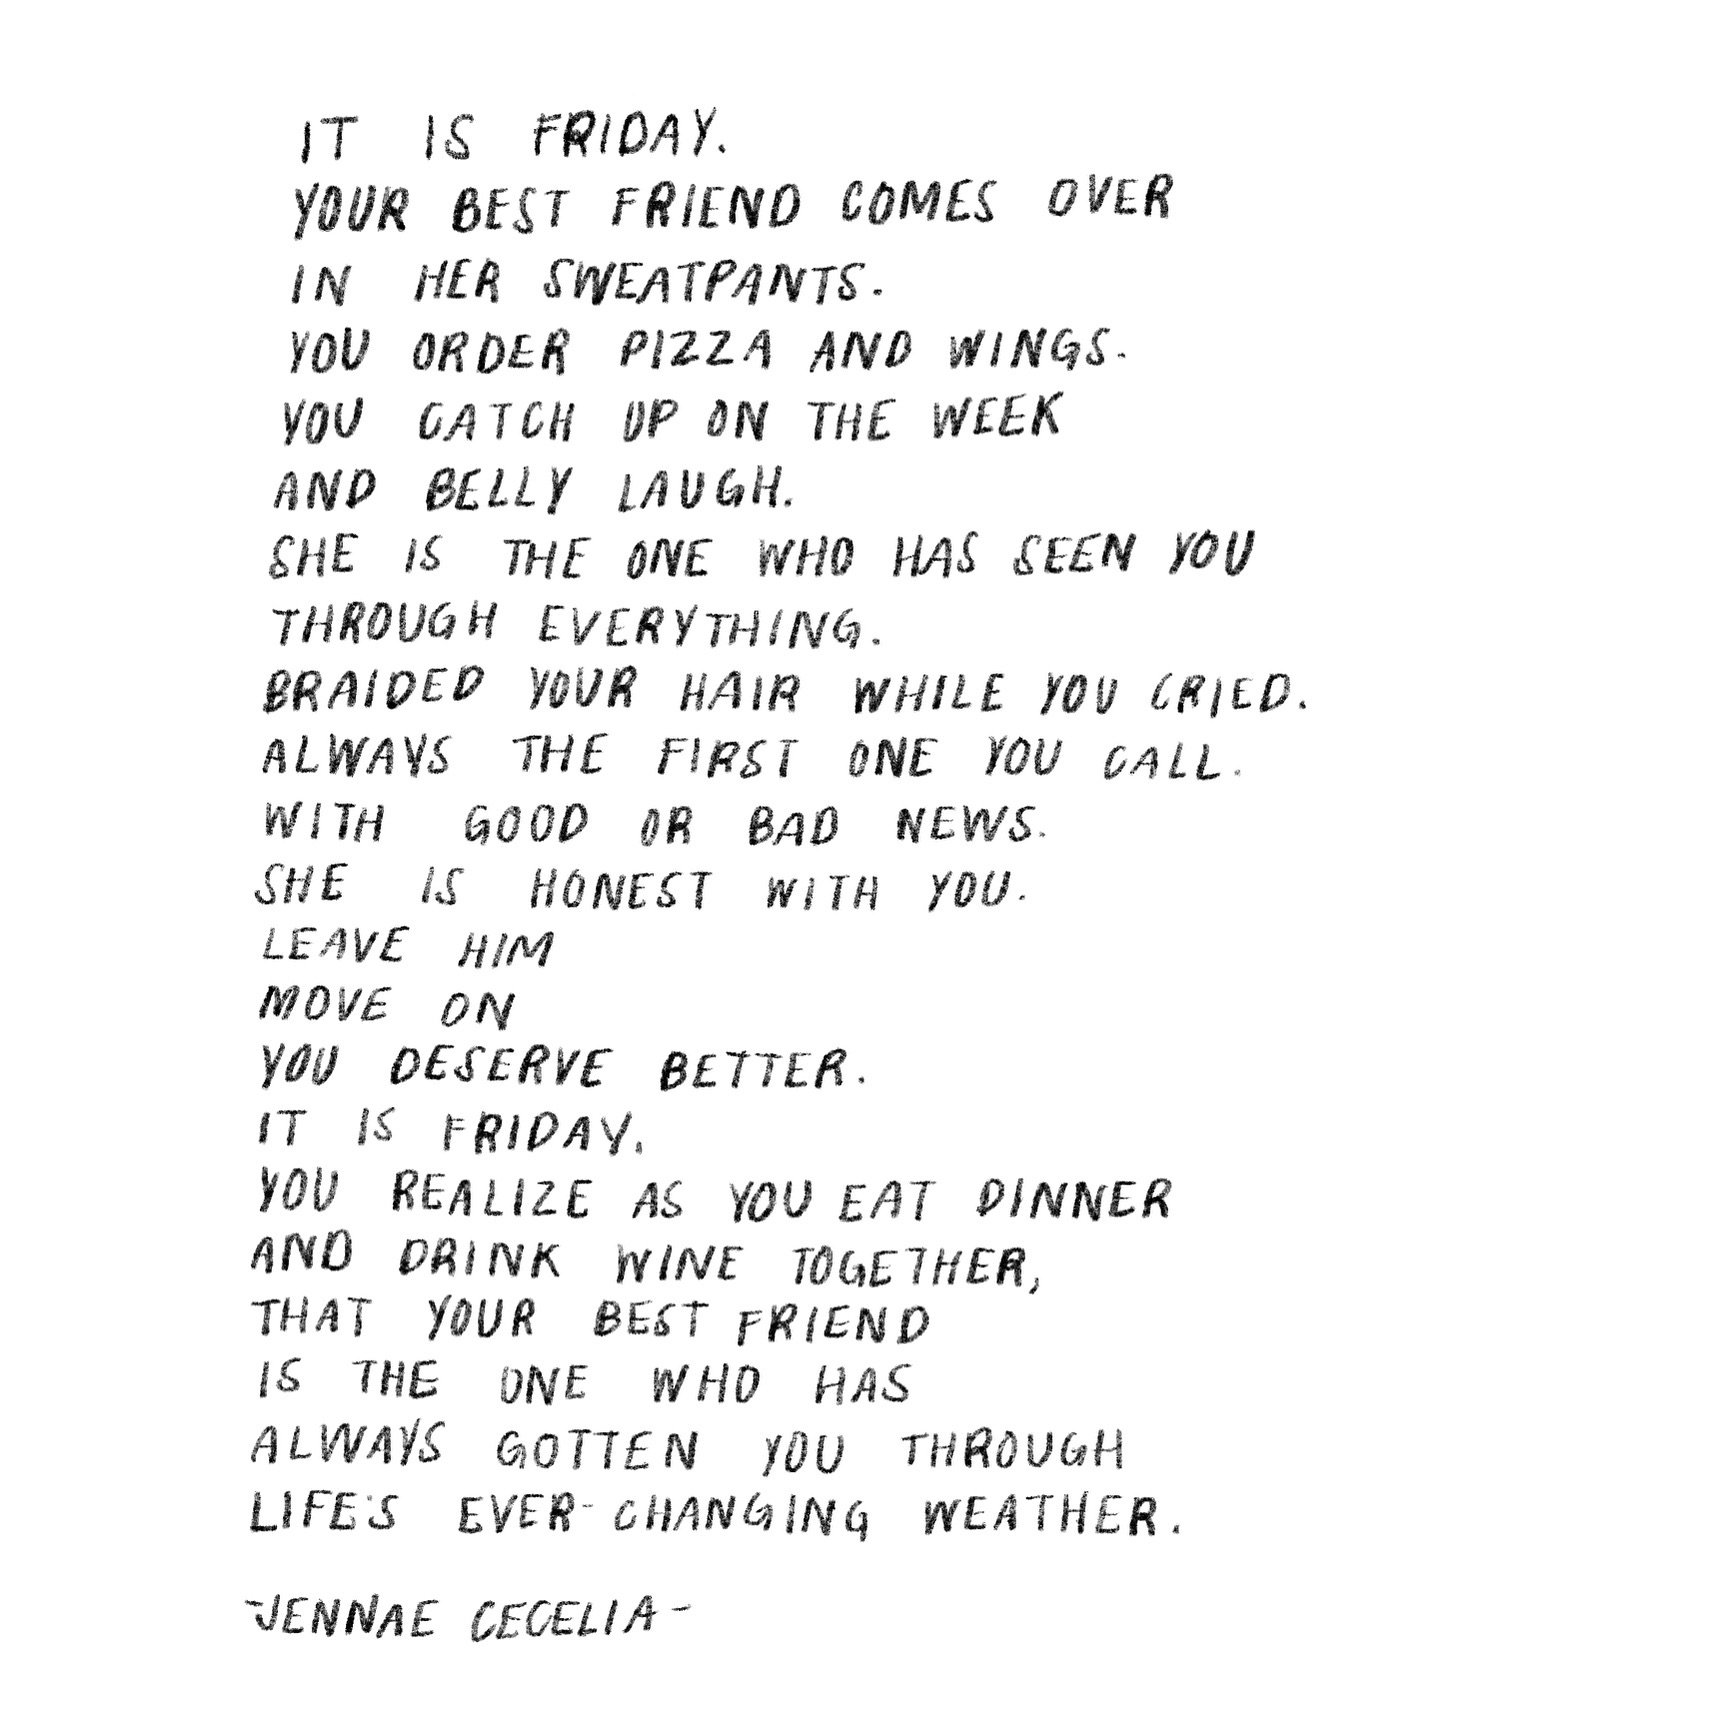 IT IS FRIDAY.
YOUR BEST FRIEND COMES OVER
IN HER SWEATPANTS.
YOU ORDER PIZZA AND WINGS.
YOU CATCH UP ON THE WEEK
AND BELLY LAUGH.
SHE IS THE ONE WHO HAS SEEN YOU
THROUGH EVERYTHING.
BRAIDED YOUR HAIR WHILE YOU CRIED.
ALWAYS THE FIRST ONE YOU CALL.
WITH GOOD OR BAD NEWS.
SHE IS HONEST WITH YOU.
LEAVE HIM
MOVE ON
YOU DESERVE BETTER.
IT IS FRIDAY.
YOU REALIZE AS YOU EAT DINNER
AND DRINK WINE TOGETHER,
THAT YOUR BEST FRIEND
IS THE ONE WHO HAS
ALWAYS GOTTEN YOU THROUGH
LIFE'S EVER-CHANGING WEATHER.
-JENNAE CECELIA-